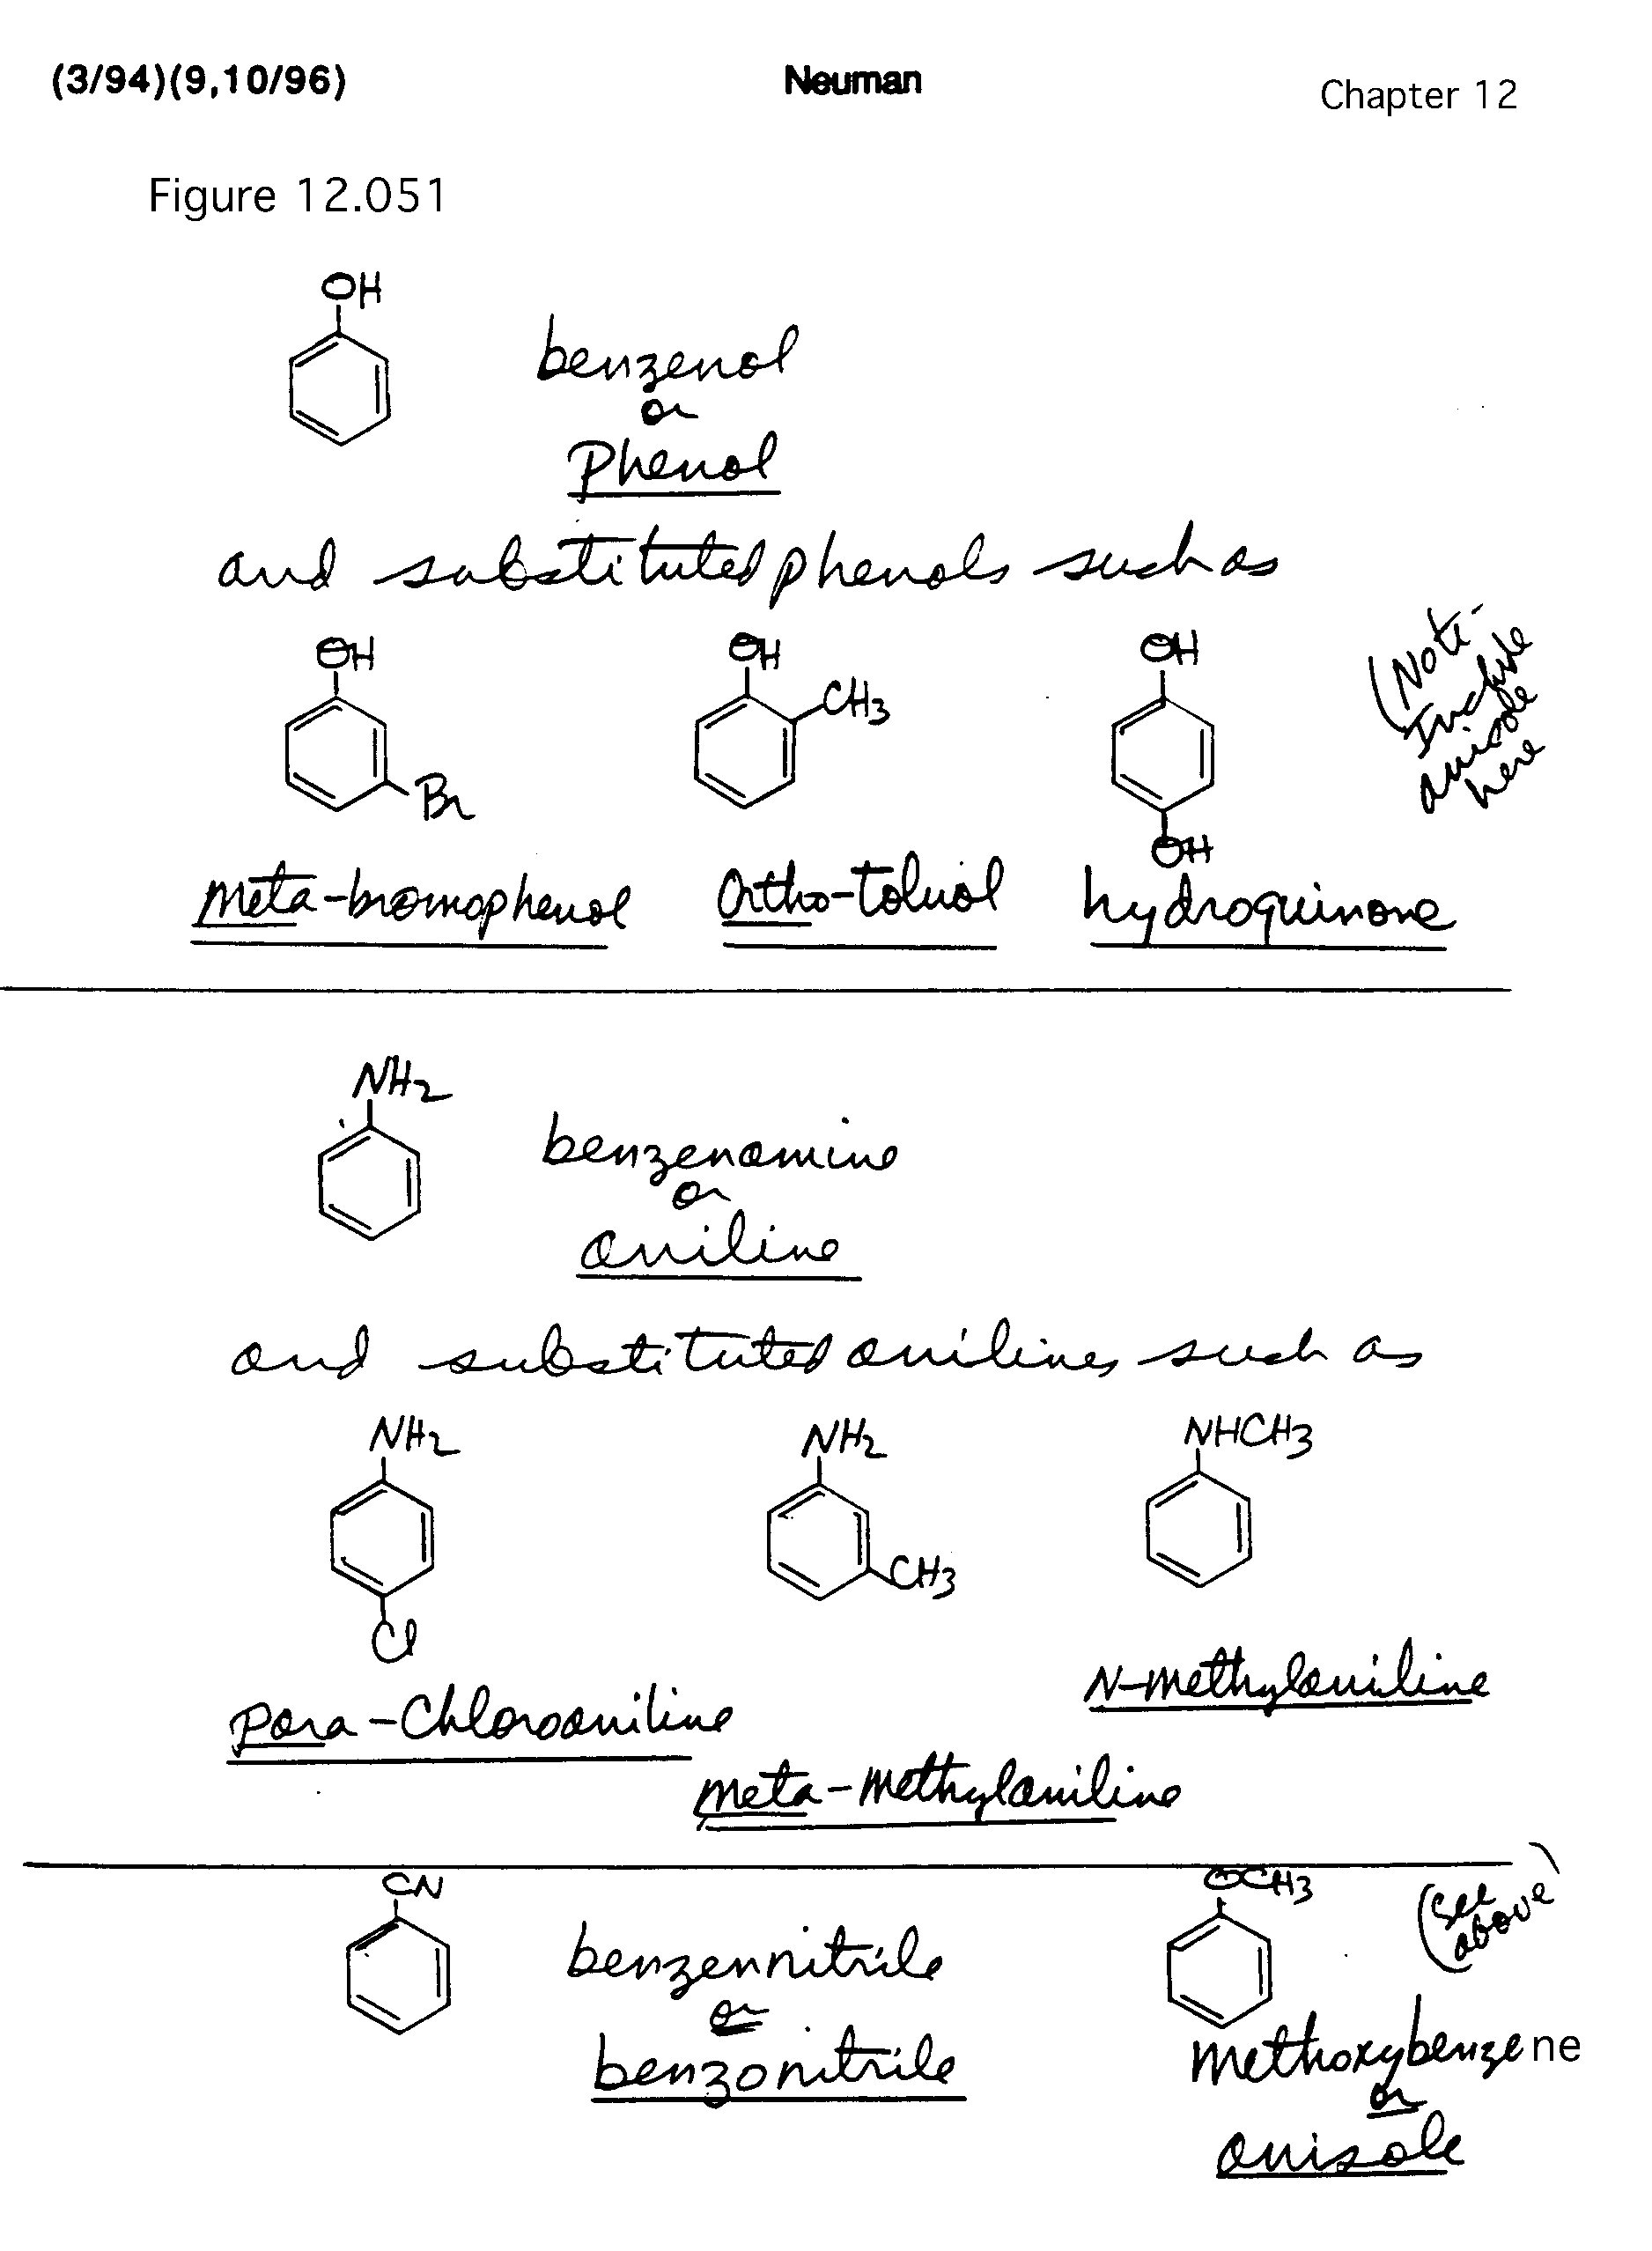 (3/94)(9,10/96) Neuman Chapter 12
Figure 12.051
OH
benzenol
or
Phenol
and substituted phenols such as
OH OH OH
CH3
Br
OH
(Note-
Include
anisole
here
meta-bromophenol ortho-toluol hydroquinone
NH2
benzenamine
or
aniline
and substituted anilines such as
NH2 NH2 NHCH3
CH3
Cl
N-methylaniline
para-Chloroaniline
meta-methylaniline
CN OCH3
(see
above)
benzennitrile
or
benzonitrile
methoxybenzene
or
anisole